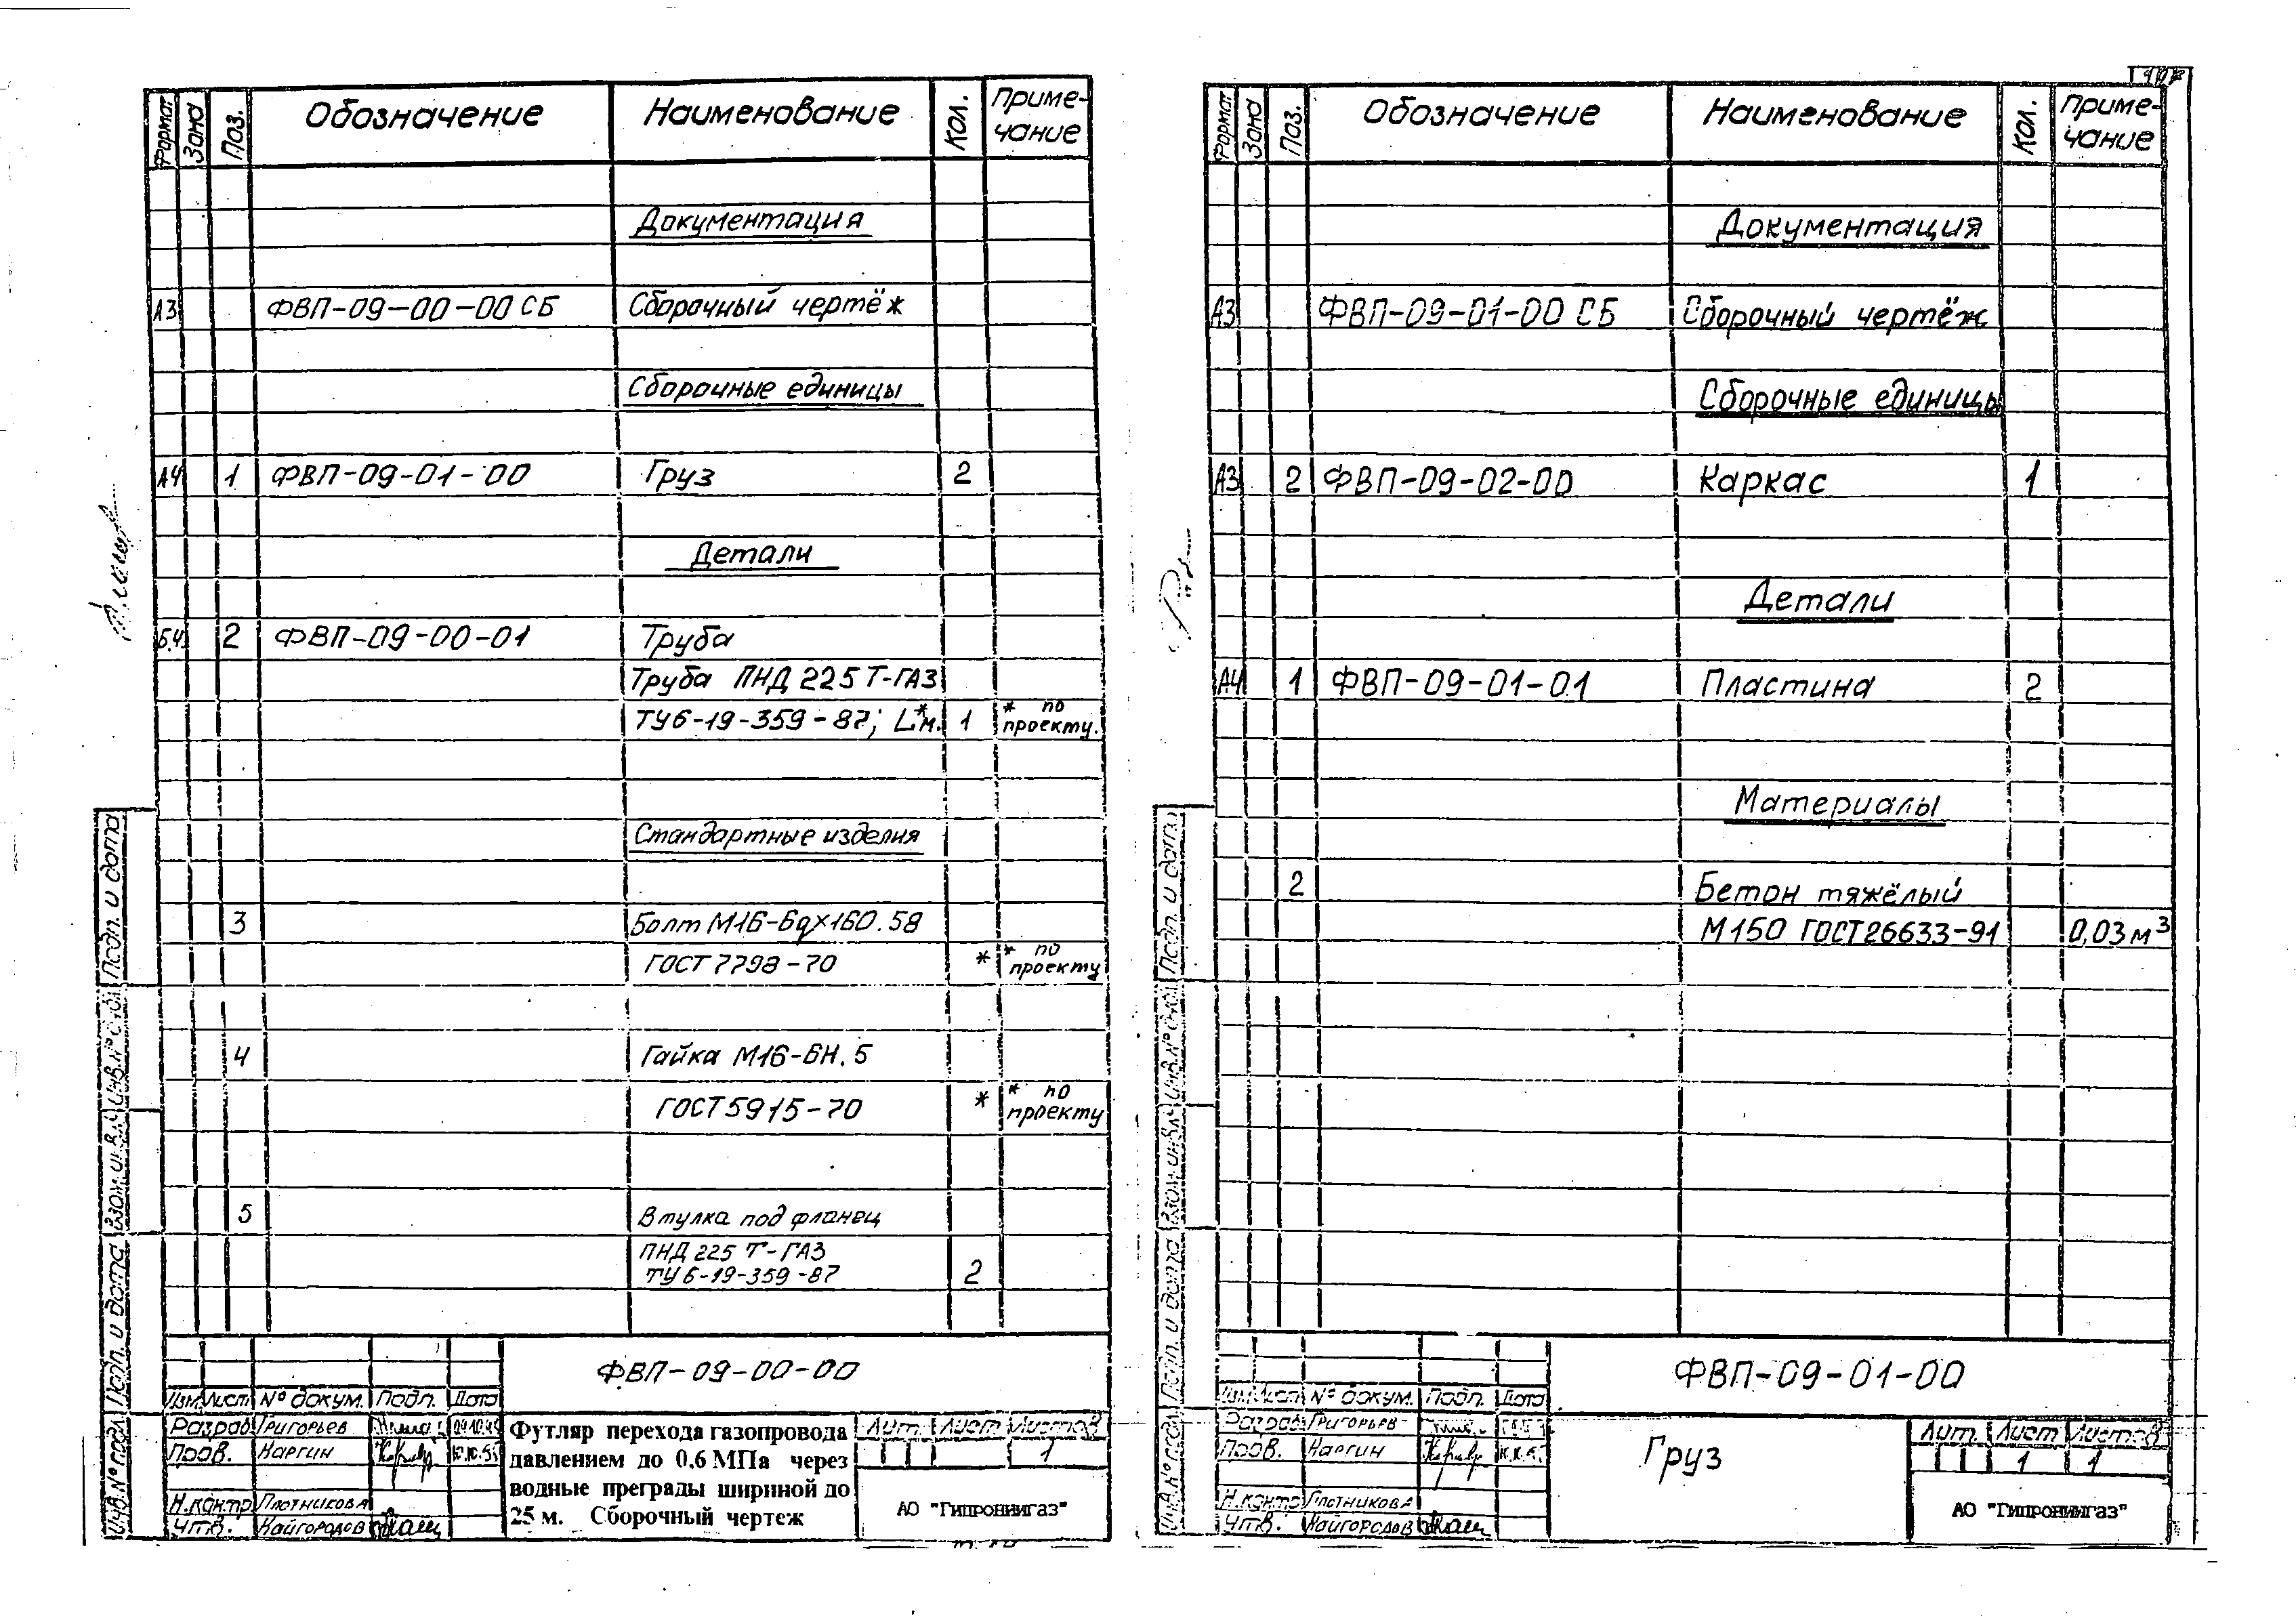 Формат Зона Поз. Обозначение Наименование Кол. Приме-
чание
Документация
А3 ФВП-09-00-00 СБ Сборочный чертёж
Сборочные единицы
А4 1 ФВП-09-01-00 Груз 2
Детали
Б4 2 ФВП-09-00-01 Труба
Труба ПНД 225 Т-ГАЗ
ТУ6-19-359-87; L*м. 1 * по
проекту.
Стандартные изделия
3 Болт М16-6gх160.58
ГОСТ 7798-70 * * по
проекту
4 Гайка М16-6Н.5
ГОСТ 5915-70 * * по
проекту
5 Втулка под фланец
ПНД 225 Т-ГАЗ
ТУ6-19-359-87 2
ФВП-09-00-00
Изм. Лист № докум. Подп. Дата
Разраб. Григорьев
Пров. Каргин
Н.контр. Плотникова
Утв. Кайгородов
Футляр перехода газопровода
давлением до 0.6 МПа через
водные преграды шириной до
25 м. Сборочный чертеж
Лит. Лист Листов
1
АО "Гипрониигаз"
Инв.№подл. Подп. и дата Взам.инв.№ Инв.№ Подп. и дата
Формат Зона Поз. Обозначение Наименование Кол. Приме-
чание
Документация
А3 ФВП-09-01-00 СБ Сборочный чертёж
Сборочные единицы
А3 2 ФВП-09-02-00 Каркас 1
Детали
А4 1 ФВП-09-01-01 Пластина 2
Материалы
2 Бетон тяжёлый
М150 ГОСТ26633-91 0,03м³
ФВП-09-01-00
Изм. Лист № докум. Подп. Дата
Разраб. Григорьев
Пров. Каргин
Н.контр. Плотникова
Утв. Кайгородов
Груз
Лит. Лист Листов
1 1
АО "Гипрониигаз"
Инв.№подл. Подп. и дата Взам.инв.№ Инв.№ Подп. и дата